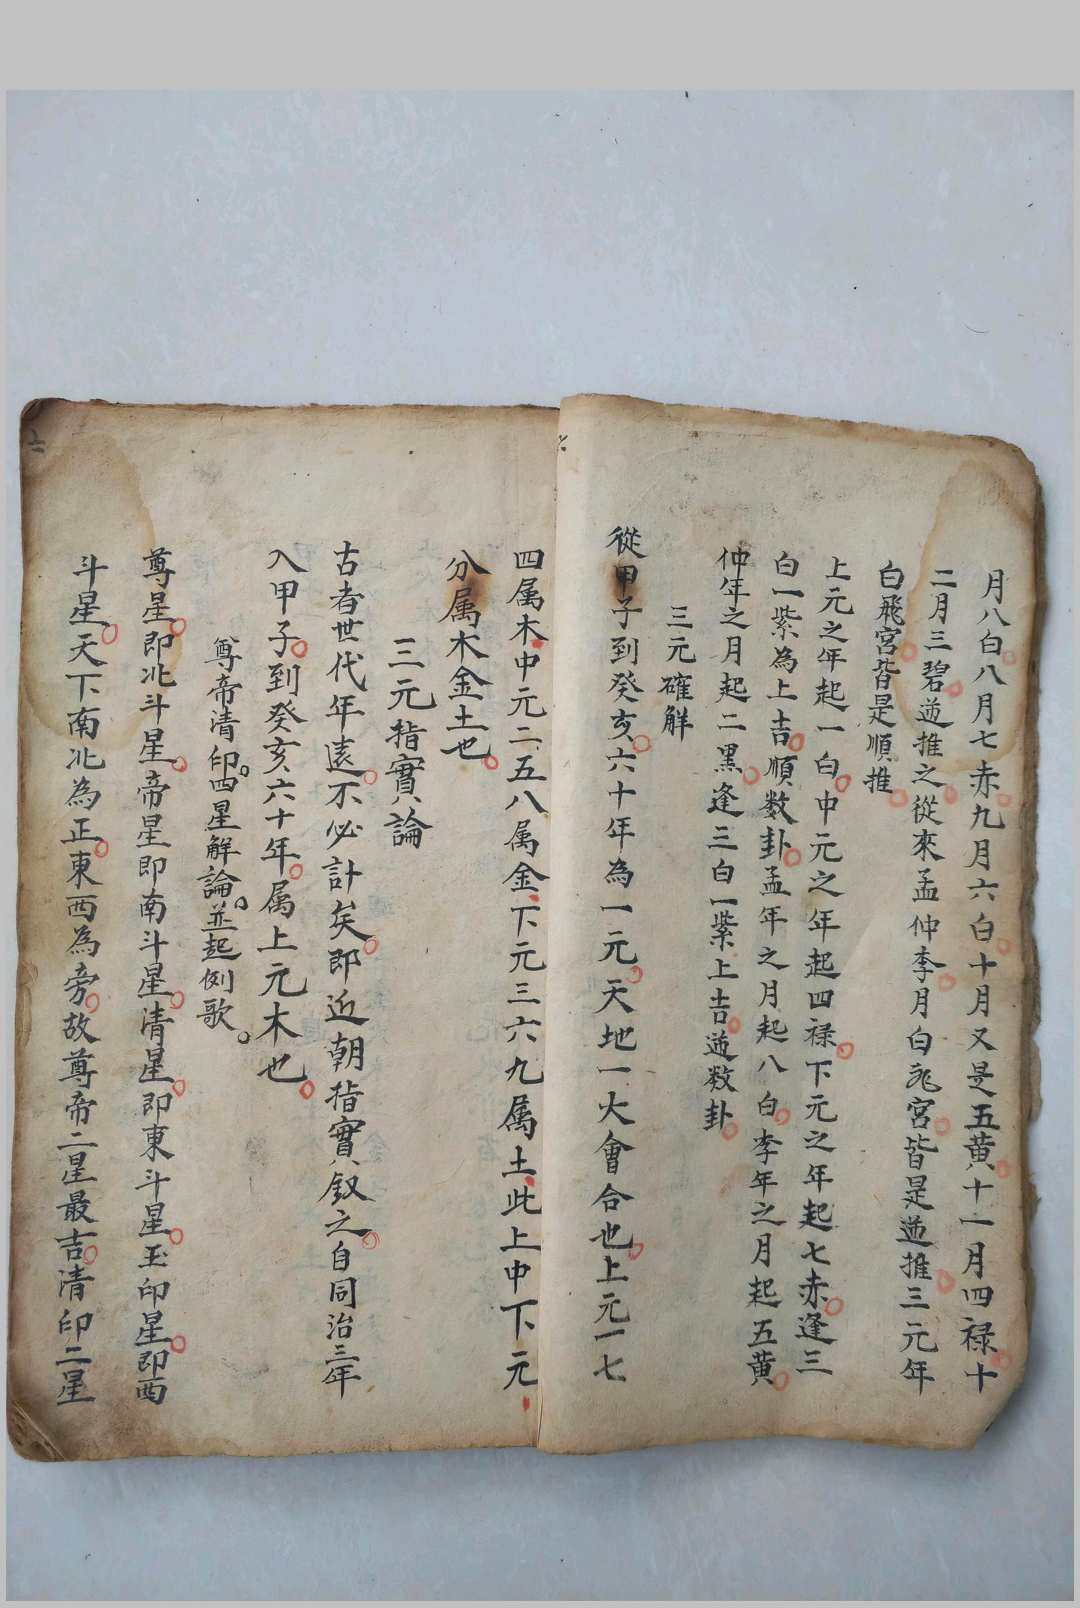 月八白八月七赤九月六白十月又是五黄十一月四禄十
二月三碧逆推之從來孟仲季月白飛宮皆是逆推三元年
白飛宮皆是順推
上元之年起一白中元之年起四禄下元之年起七赤逢三
白一紫為上吉順数卦孟年之月起八白季年之月起五黄
仲年之月起二黑逢三白一紫上吉逆数卦
三元確解
從甲子到癸亥六十年為一元天地一大會合也上元一七
四属木中元二五八属金下元三六九属土此上中下元
分属木金土也
三元指實論
古者世代年遠不必計矣即近朝指實叙之自同治三年
入甲子到癸亥六十年属上元木也
尊帝清印四星解論並起例歌
尊星即北斗星帝星即南斗星清星即東斗星玉印星即西
斗星天下南北為正東西為旁故尊帝二星最吉清印二星